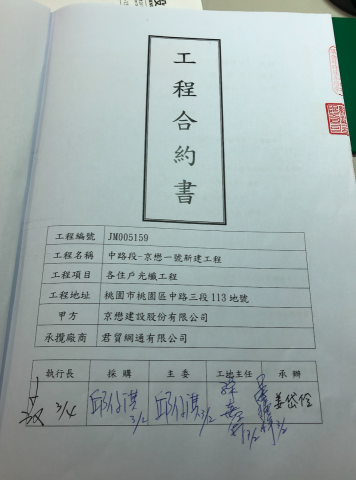 工程合約書
工程編號 JM005159
工程名稱 中路段-京懋一號新建工程
工程項目 各住戶光纖工程
工程地址 桃園市桃園區中路三段113地號
甲方 京懋建設股份有限公司
承攬廠商 君貿網通有限公司
執行長 採購 主委 工地主任 承辦
3/4 3/2 3/2 3/2 3/2